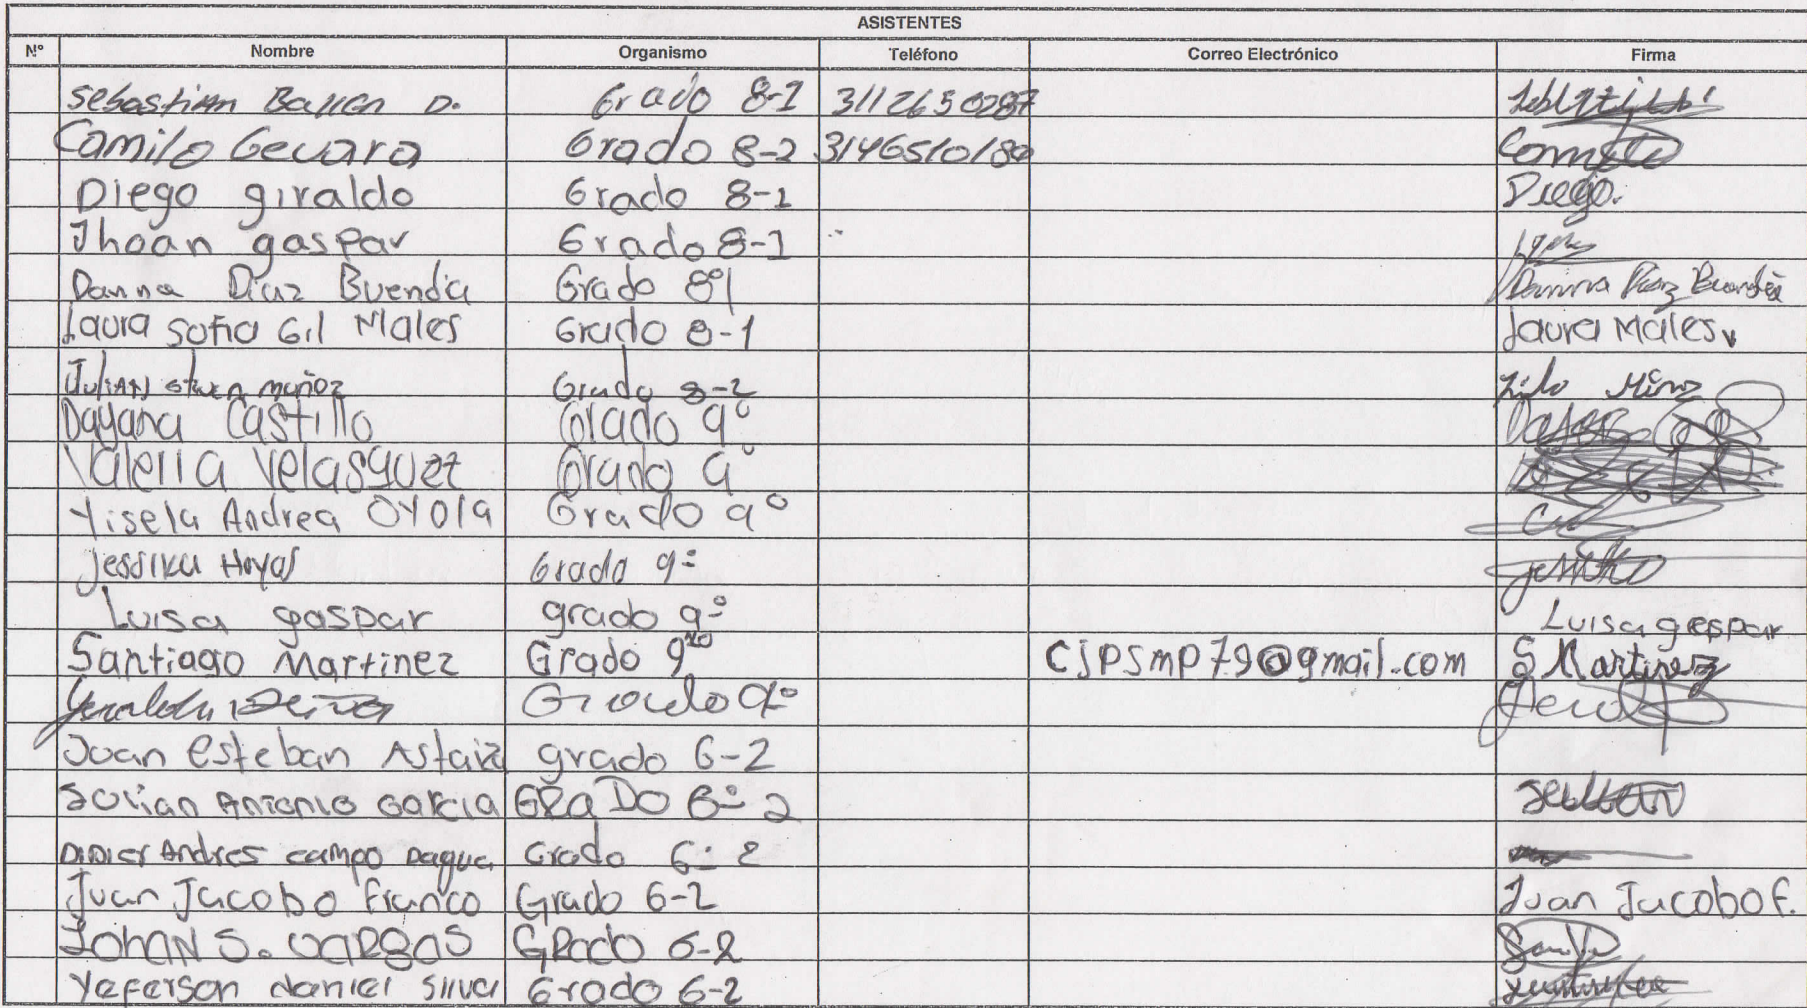 ASISTENTES
Nº Nombre Organismo Teléfono Correo Electrónico Firma
Sebastian Ballen D. Grado 8-1 3112650287
Camilo Gevara Grado 8-2 3146510180 Camilo
Diego giraldo Grado 8-1 Diego.
Jhoan gaspar Grado 8-1
Danna Diaz Buendia Grado 8º1 Danna Diaz Buendia
Laura Sofia Gil Males Grado 8-1 Laura Males
Julian muñoz Grado 8-2
Dayana Castillo Grado 9º
Valeria Velasquez Grado 9º
Yisela Andrea OYOla Grado 9º
Jessika Hoyos Grado 9º
Luisa gaspar grado 9º Luisa gaspar
Santiago Martinez Grado 9no cjpsmp79@gmail.com S Martinez
Grado 9º
Juan esteban Astaiza grado 6-2
Antonio Garcia GRaDO 6º 2
DiDier Andres campo Dagua Grado 6º 2
Juan Jacobo Franco Grado 6-2 Juan Jacobo F.
Johan S. vargas GRado 6-2
Yeferson daniel Silva Grado 6-2